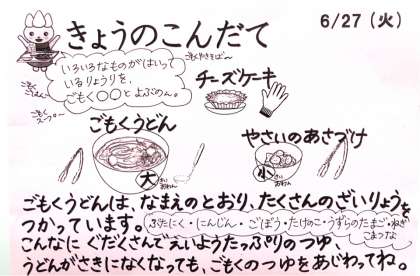 きょうのこんだて
6/27(火)
いろいろなものがはいって
いるりょうりを、
ごもく〇〇とよぶめん。
ごもくやきそば〜
チーズケーキ
ごもくうどん
大
やさいのあさづけ
小
ごもくうどんは、なまえのとおり、たくさんのざいりょうを
つかっています。
ぶたにく・にんじん・ごぼう・たけのこ・うずらのたまご・ねぎ
こまつな
こんなに ぐだくさんでえいようたっぷりのつゆ、
うどんがさきになくなっても、ごもくのつゆをあじわってね。